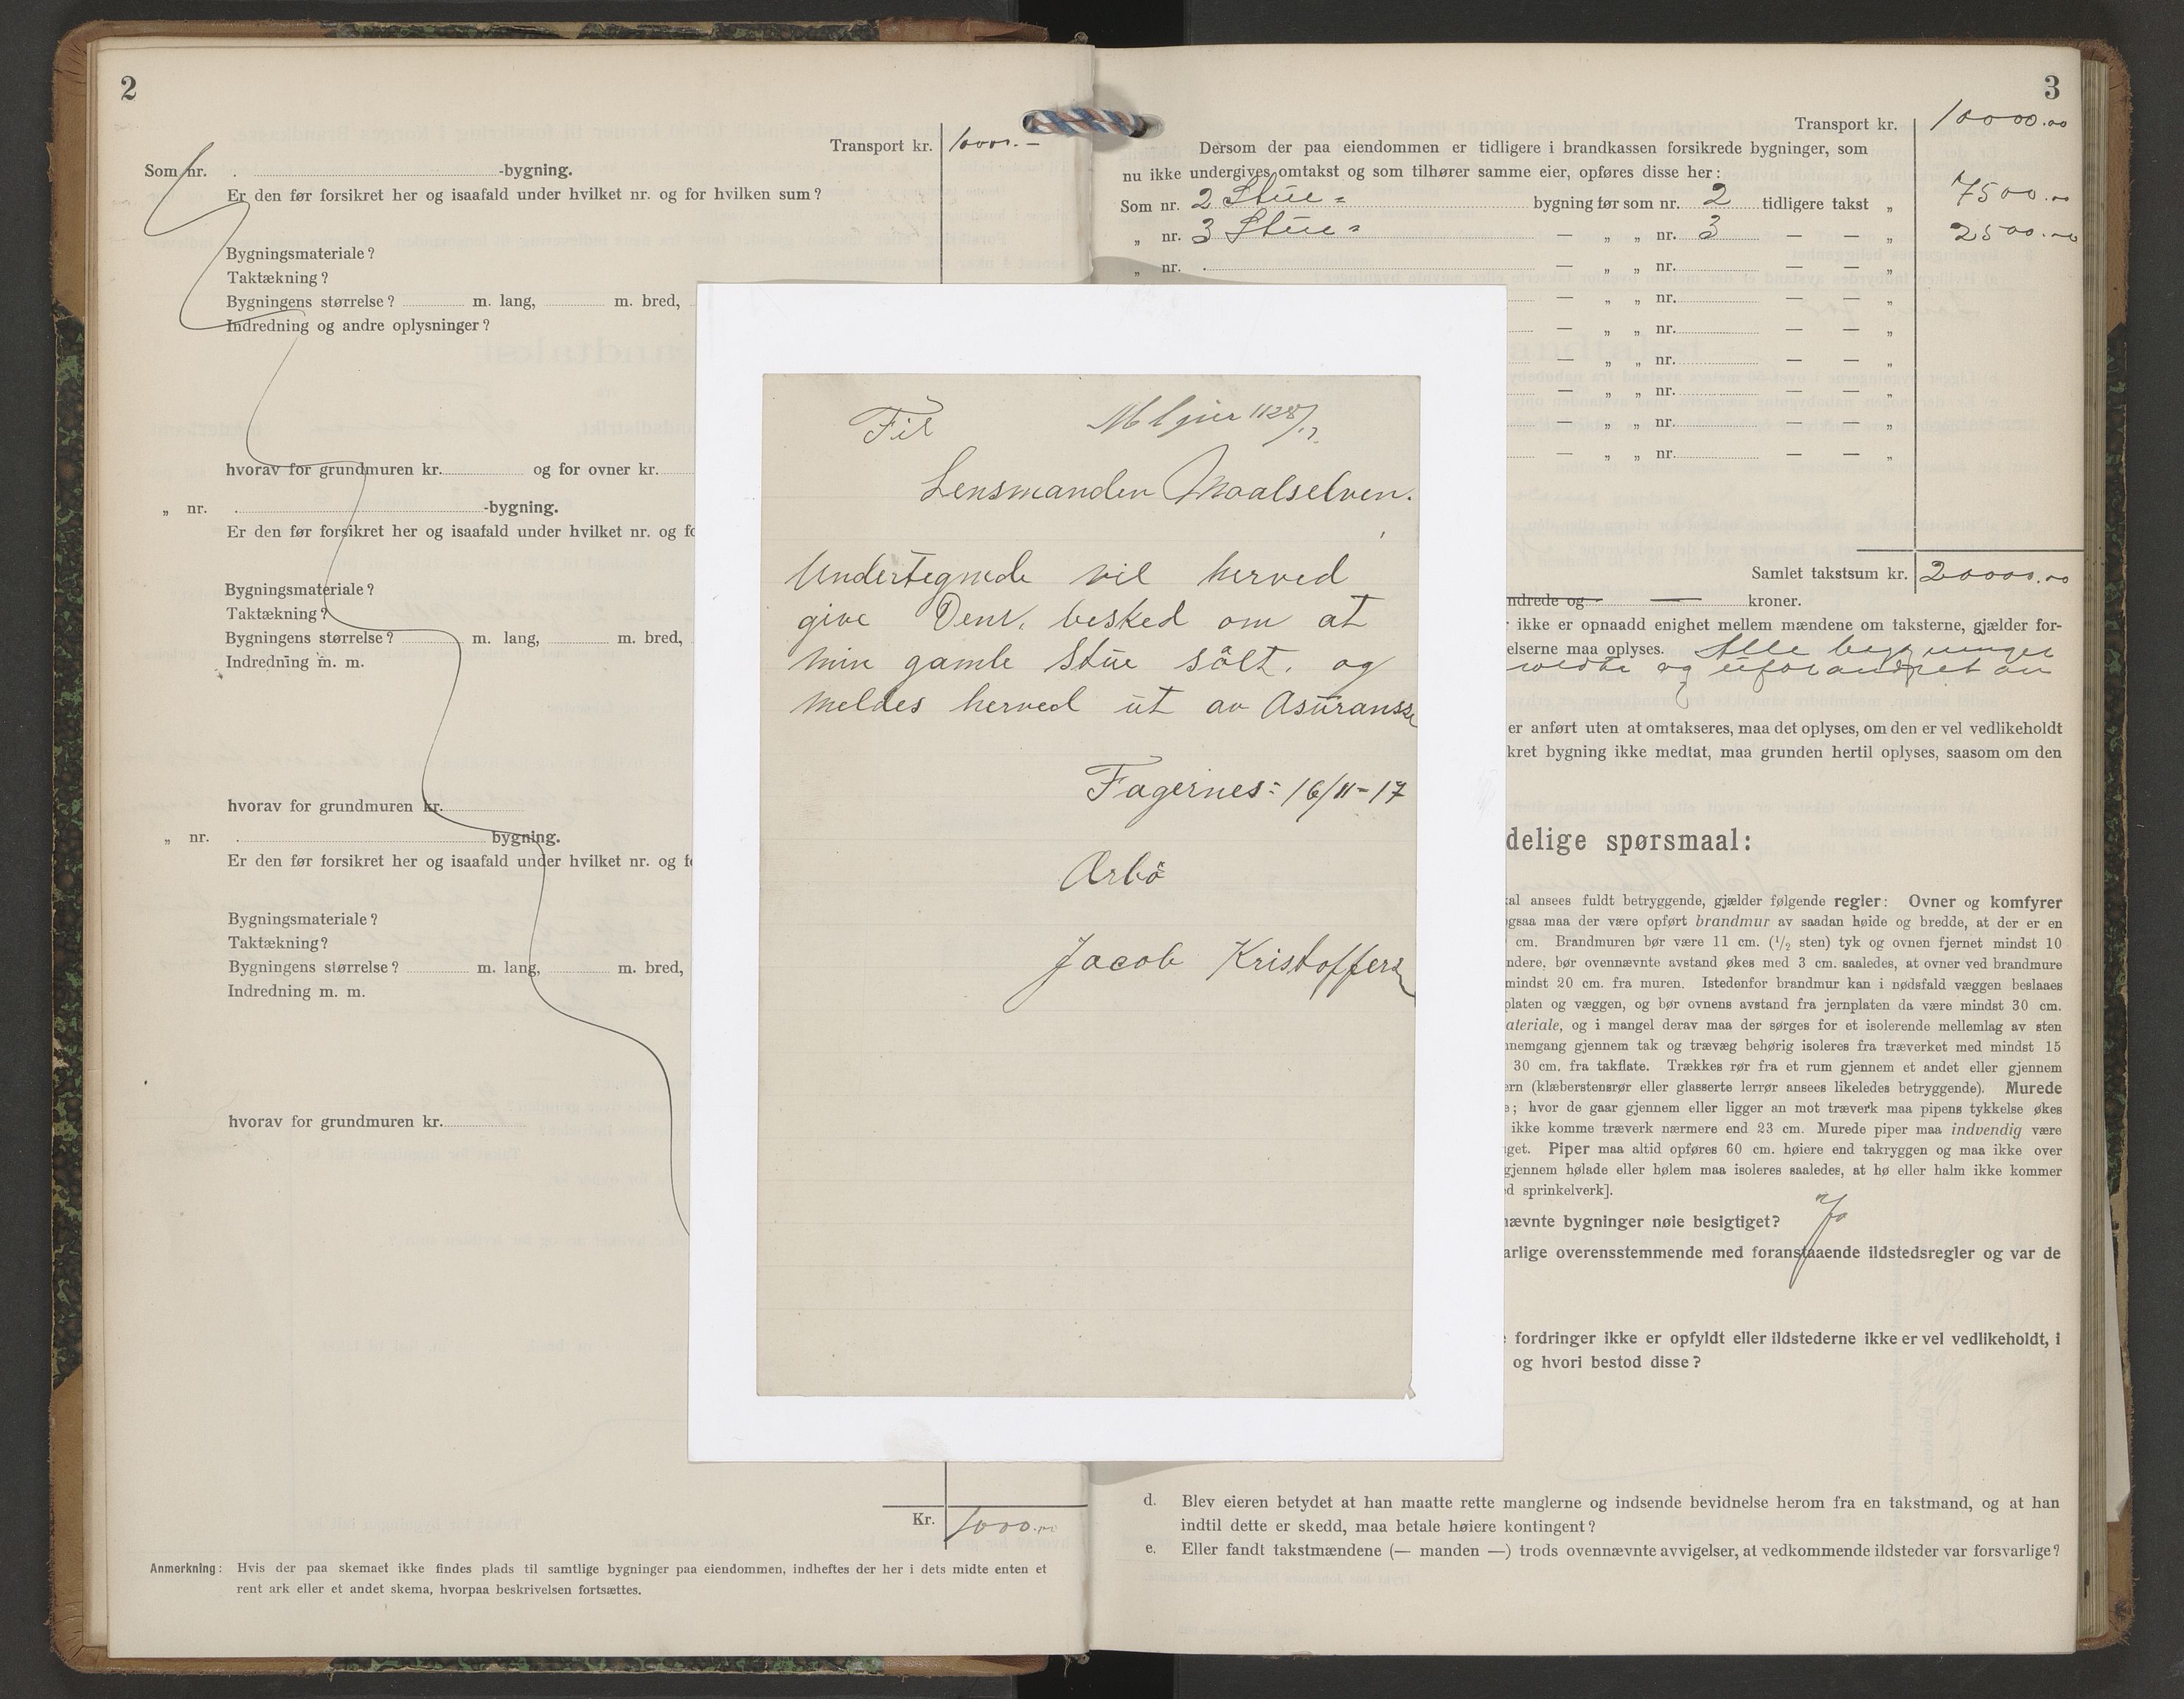 2
Transport kr. 1000.-
Som nr. . -bygning.
Er den før forsikret her og isaafald under hvilket nr. og for hvilken sum?
Bygningsmateriale?
Taktækning?
Bygningens størrelse? m. lang, m. bred,
Indredning og andre oplysninger?
hvorav for grundmuren kr. og for ovner kr.
„ nr. . -bygning.
Er den før forsikret her og isaafald under hvilket nr. og fo
Bygningsmateriale?
Taktækning?
Bygningens størrelse? m. lang, m. bred,
Indredning m. m.
hvorav for grundmuren kr.
„ nr. . bygning.
Er den før forsikret her og isaafald under hvilket nr. og f
Bygningsmateriale?
Taktækning?
Bygningens størrelse? m. lang, m. bred,
Indredning m. m.
hvorav for grundmuren kr.
Kr. 1000.00
Anmerkning: Hvis der paa skemaet ikke findes plads til samtlige bygninger paa eiendommen, indheftes der her i dets midte enten et
rent ark eller et andet skema, hvorpaa beskrivelsen fortsættes.
Til
Lensmanden Maalselven.
Undertegnede vil herved
give Dem. besked om at
min gamle Stue sålt. og
meldes herved ut av Asuransse
Fagernes: 16/11-17
Ærbö
Jacob Kristoffers
3
Transport kr. 10000.00
Dersom der paa eiendommen er tidligere i brandkassen forsikrede bygninger, som
nu ikke undergives omtakst og som tilhører samme eier, opføres disse her:
Som nr. 2 Stue = bygning før som nr. 2 tidligere takst „ 7500.00
„ nr. 3 Stue = — „ „ nr. 3 — — „ 2500.00
„ nr. . — „ „ nr. — — „
— „ „ nr. — — „
— „ „ nr. — — „
— „ „ nr. — — „
— „ „ nr. — — „
— „ „ nr. — — „
— „ „ nr. — — „
Samlet takstsum kr. 20000.00
ndrede og — kroner.
ikke er opnaadd enighet mellem mændene om taksterne, gjælder for-
elserne maa oplyses. Alle bygninger
og uforandret an
er anført uten at omtakseres, maa det oplyses, om den er vel vedlikeholdt
kret bygning ikke medtat, maa grunden hertil oplyses, saasom om den
delige spørsmaal:
al ansees fuldt betryggende, gjælder følgende regler: Ovner og komfyrer
gsaa maa der være opført brandmur av saadan høide og bredde, at der er en
cm. Brandmuren bør være 11 cm. (1/2 sten) tyk og ovnen fjernet mindst 10
ndere, bør ovennævnte avstand økes med 3 cm. saaledes, at ovner ved brandmure
mindst 20 cm. fra muren. Istedenfor brandmur kan i nødsfald væggen beslaaes
platen og væggen, og bør ovnens avstand fra jernplaten da være mindst 30 cm.
ateriale, og i mangel derav maa der sørges for et isolerende mellemlag av sten
nnemgang gjennem tak og trævæg behørig isoleres fra træverket med mindst 15
30 cm. fra takflate. Trækkes rør fra et rum gjennem et andet eller gjennem
ern (klæberstensrør eller glasserte lerrør ansees likeledes betryggende). Murede
e; hvor de gaar gjennem eller ligger an mot træverk maa pipens tykkelse økes
ikke komme træverk nærmere end 23 cm. Murede piper maa indvendig være
get. Piper maa altid opføres 60 cm. høiere end takryggen og maa ikke over
gjennem hølade eller hølem maa isoleres saaledes, at hø eller halm ikke kommer
d sprinkelverk].
nævnte bygninger nøie besigtiget? Ja
arlige overensstemmende med foranstaaende ildstedsregler og var de
fordringer ikke er opfyldt eller ildstederne ikke er vel vedlikeholdt, i
og hvori bestod disse?
d. Blev eieren betydet at han maatte rette manglerne og indsende bevidnelse herom fra en takstmand, og at han
indtil dette er skedd, maa betale høiere kontingent?
e. Eller fandt takstmændene (— manden —) trods ovennævnte avvigelser, at vedkommende ildsteder var forsvarlige?